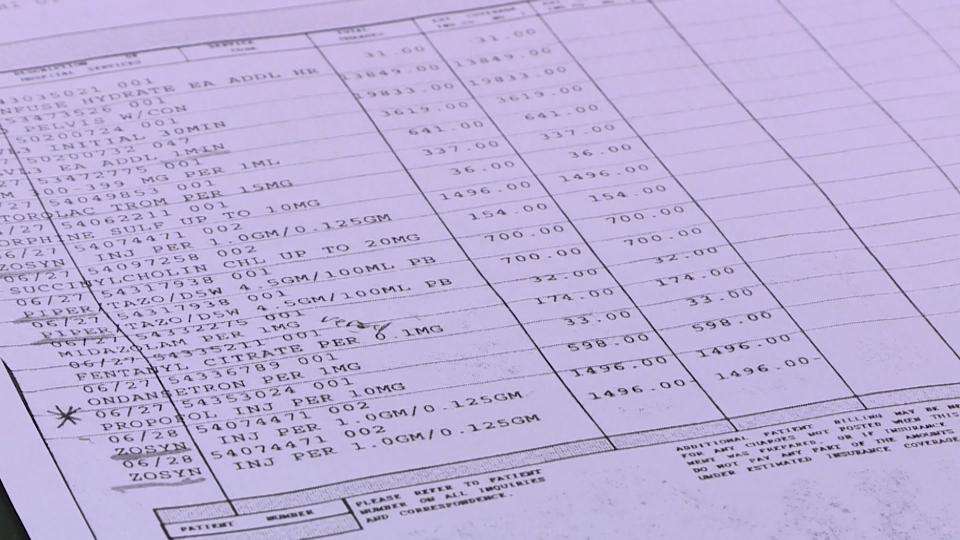 DESCRIPTION OF
HOSPITAL SERVICES
SERVICE
CODE
TOTAL
CHARGES
43035021 001
HYDRATE EA ADDL HR 31.00 31.00
53473526 001
PELVIS W/CON 13849.00 13849.00
50200724 001
INITIAL 30MIN 19833.00 19833.00
50200732 047
EA ADDL 1MIN 3619.00 3619.00
53472775 001
399 MG PER 1ML 641.00 641.00
540498 53 001
PER 15MG 337.00 337.00
54062211 001
SULF UP TO 10MG 36.00 36.00
06/27 54074471 002
ZOSYN INJ PER 1.0GM/0.125GM 1496.00 1496.00
06/27 54097258 002
SUCCINYLCHOLIN CHL UP TO 20MG 154.00 154.00
06/27 54317938 001
PIPER/TAZO/D5W 4.5GM/100ML PB 700.00 700.00
06/27 54317938 001
PIPER/TAZO/D5W 4.5GM/100ML PB 700.00 700.00
06/27 54332275 001
MIDAZOLAM PER 1MG 32.00 32.00
06/27 54335211 001
FENTANYL CITRATE PER 0.1MG 174.00 174.00
06/27 54336789 001
ONDANSETRON PER 1MG 33.00 33.00
06/27 54353024 001
PROPOFOL INJ PER 10MG 598.00 598.00
06/28 54074471 002
ZOSYN INJ PER 1.0GM/0.125GM 1496.00 1496.00
06/28 54074471 002
ZOSYN INJ PER 1.0GM/0.125GM 1496.00 1496.00
PATIENT NUMBER
PLEASE REFER TO PATIENT
NUMBER ON ALL INQUIRIES
AND CORRESPONDENCE.
ADDITIONAL PATIENT BILLING MAY BE
FOR ANY CHARGES NOT POSTED WHEN
MENT WAS PREPARED, OR IF INSURANCE
DO NOT PAY ANY PART OF THE AMOUNTS
UNDER ESTIMATED INSURANCE COVERAGE